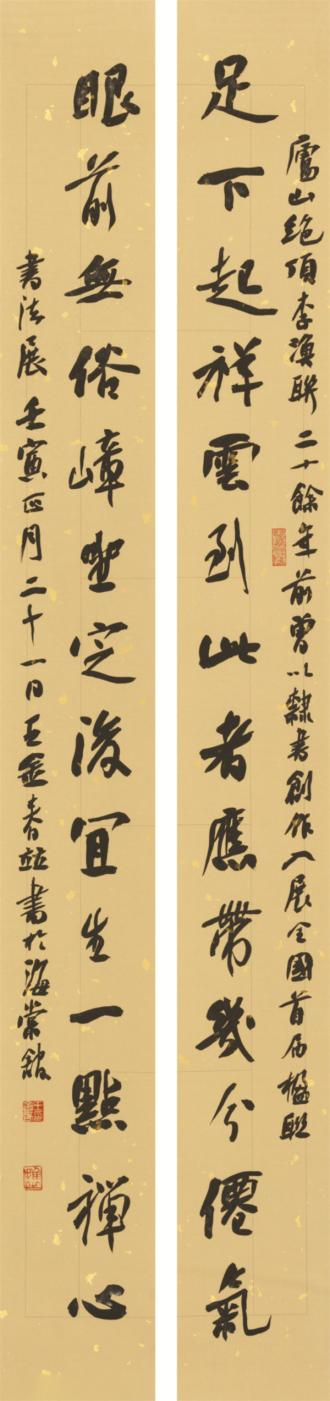 廬山絕頂李漁聯二十餘年前曾以隸書創作入展全國首届楹聯
足下起祥雲到此者應帶幾分僊氣
眼前無俗嶂坐定後宜生一點禪心
書法展壬寅正月二十一日王金春竝書於海棠館